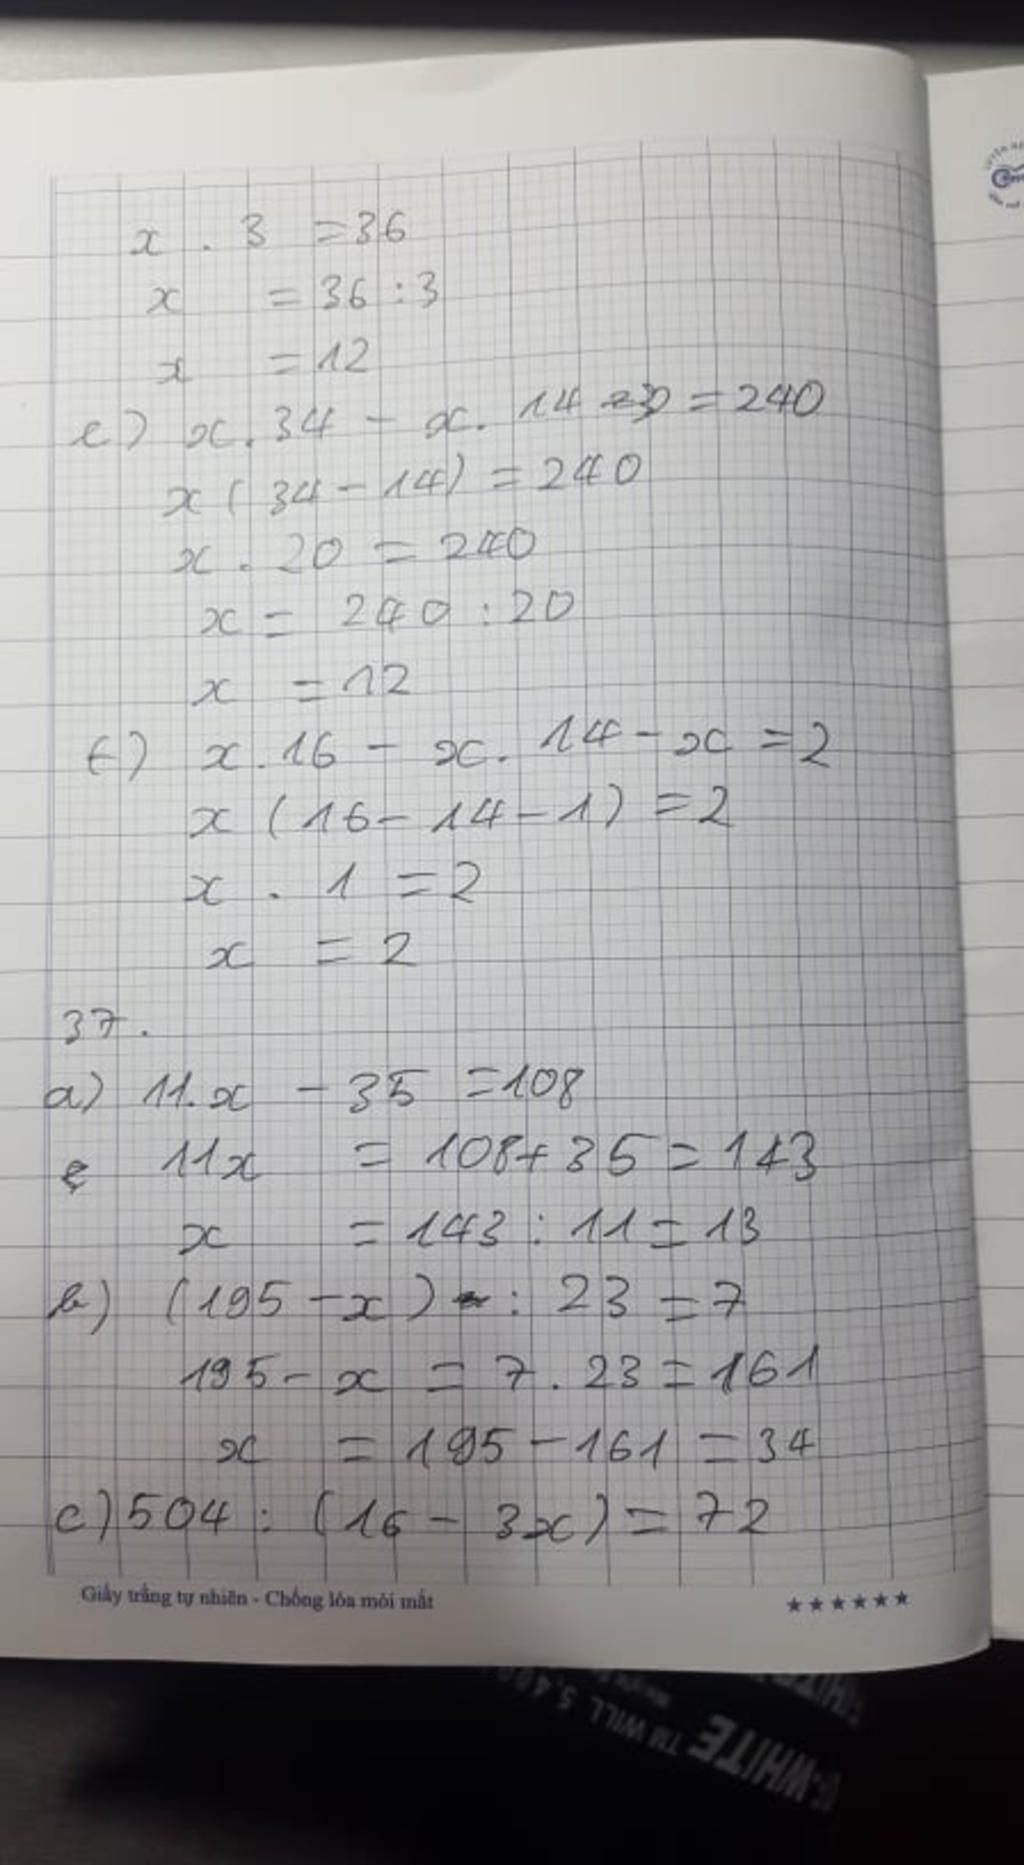 x . 3 = 36
x = 36 : 3
x = 12
e) x . 34 - x . 14 = 240
x ( 34 - 14 ) = 240
x . 20 = 240
x = 240 : 20
x = 12
f) x . 16 - x . 14 - x = 2
x ( 16 - 14 - 1 ) = 2
x . 1 = 2
x = 2
37.
a) 11.x - 35 = 108
11x = 108 + 35 = 143
x = 143 : 11 = 13
b) (195 - x) : 23 = 7
195 - x = 7 . 23 = 161
x = 195 - 161 = 34
c) 504 : (16 - 3x) = 72
Giấy trắng tự nhiên - Chống lóa mỏi mắt
★★★★★★
TM WILL 5,400
WHITE